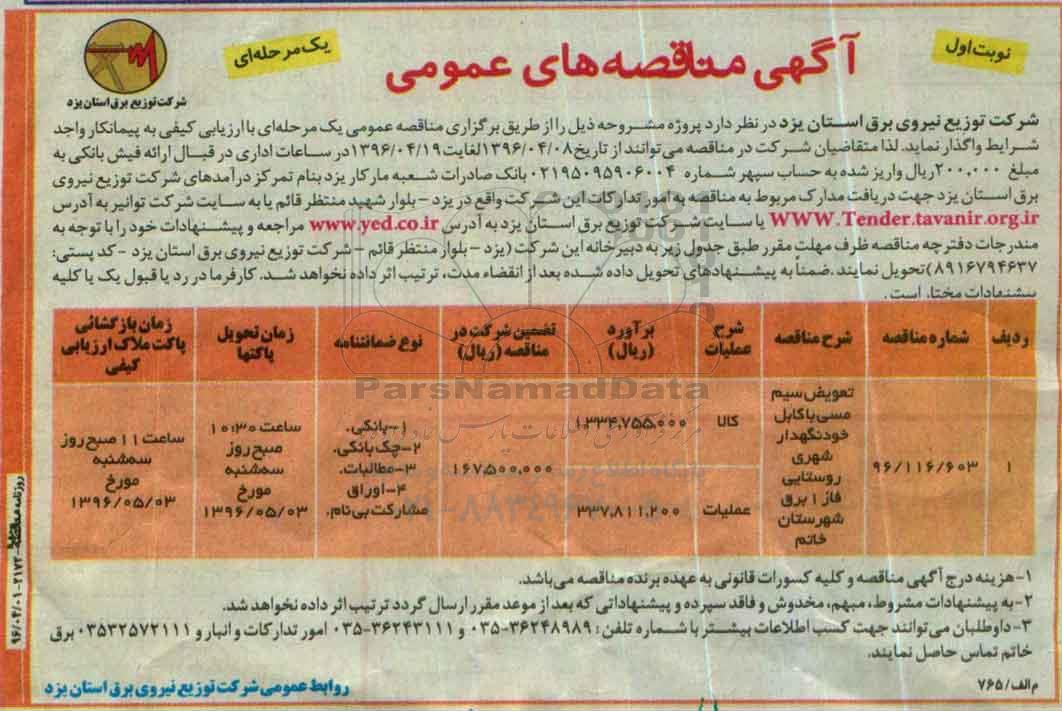 نوبت اول
آگهی مناقصه‌های عمومی
یک مرحله‌ای
شرکت توزیع برق استان یزد
شرکت توزیع نیروی برق استان یزد در نظر دارد پروژه مشروحه ذیل را از طریق برگزاری مناقصه عمومی یک مرحله‌ای با ارزیابی کیفی به پیمانکار واجد
شرایط واگذار نماید. لذا متقاضیان شرکت در مناقصه می‌توانند از تاریخ ۱۳۹۶/۰۴/۰۸ لغایت ۱۳۹۶/۰۴/۱۹ در ساعات اداری در قبال ارائه فیش بانکی به
مبلغ ۲۰۰,۰۰۰ ریال واریز شده به حساب سپهر شماره ۰۲۱۹۵۰۹۵۹۰۶۰۰۴ بانک صادرات شعبه مارکار یزد بنام تمرکز درآمدهای شرکت توزیع نیروی
برق استان یزد جهت دریافت مدارک مربوط به مناقصه به امور تدارکات این شرکت واقع در یزد - بلوار شهید منتظر قائم یا به سایت شرکت توانیر به آدرس
WWW.Tender.tavanir.org.ir یا سایت شرکت توزیع برق استان یزد به آدرس www.yed.co.ir مراجعه و پیشنهادات خود را با توجه به
مندرجات دفترچه مناقصه ظرف مهلت مقرر طبق جدول زیر به دبیرخانه این شرکت (یزد - بلوار منتظر قائم - شرکت توزیع نیروی برق استان یزد - کد پستی:
۸۹۱۶۷۹۴۶۳۷) تحویل نمایند. ضمناً به پیشنهادهای تحویل داده شده بعد از انقضاء مدت، ترتیب اثر داده نخواهد شد. کارفرما در رد یا قبول یک یا کلیه
پیشنهادات مختار است.
ردیف
شماره مناقصه
شرح مناقصه
شرح
عملیات
برآورد
(ریال)
تضمین شرکت در
مناقصه (ریال)
نوع ضمانتنامه
زمان تحویل
پاکتها
زمان بازگشائی
پاکت ملاک ارزیابی
کیفی
۱
۹۶/۱۱۶/۶۰۳
تعویض سیم
مسی با کابل
خودنگهدار
شهری
روستایی
فاز ۱ برق
شهرستان
خاتم
کالا
۱,۳۳۴,۷۵۵,۰۰۰
عملیات
۳۳۷,۸۱۱,۲۰۰
۱۶۷,۵۰۰,۰۰۰
۱-بانکی.
۲-چک بانکی.
۳-مطالبات.
۴-اوراق
مشارکت بی‌نام.
ساعت ۱۰:۳۰
صبح روز
سه‌شنبه
مورخ
۱۳۹۶/۰۵/۰۳
ساعت ۱۱ صبح روز
سه‌شنبه
مورخ
۱۳۹۶/۰۵/۰۳
ParsNamadData
۱-هزینه درج آگهی مناقصه و کلیه کسورات قانونی به عهده برنده مناقصه می‌باشد.
۲-به پیشنهادات مشروط، مبهم، مخدوش و فاقد سپرده و پیشنهاداتی که بعد از موعد مقرر ارسال گردد ترتیب اثر داده نخواهد شد.
۳-داوطلبان می‌توانند جهت کسب اطلاعات بیشتر با شماره تلفن: ۳۶۲۴۸۹۸۹-۰۳۵ و ۳۶۲۴۳۱۱۱-۰۳۵ امور تدارکات و انبار و ۰۳۵۳۲۵۷۲۱۱۱ برق
خاتم تماس حاصل نمایند.
م الف/۷۶۵
روابط عمومی شرکت توزیع نیروی برق استان یزد